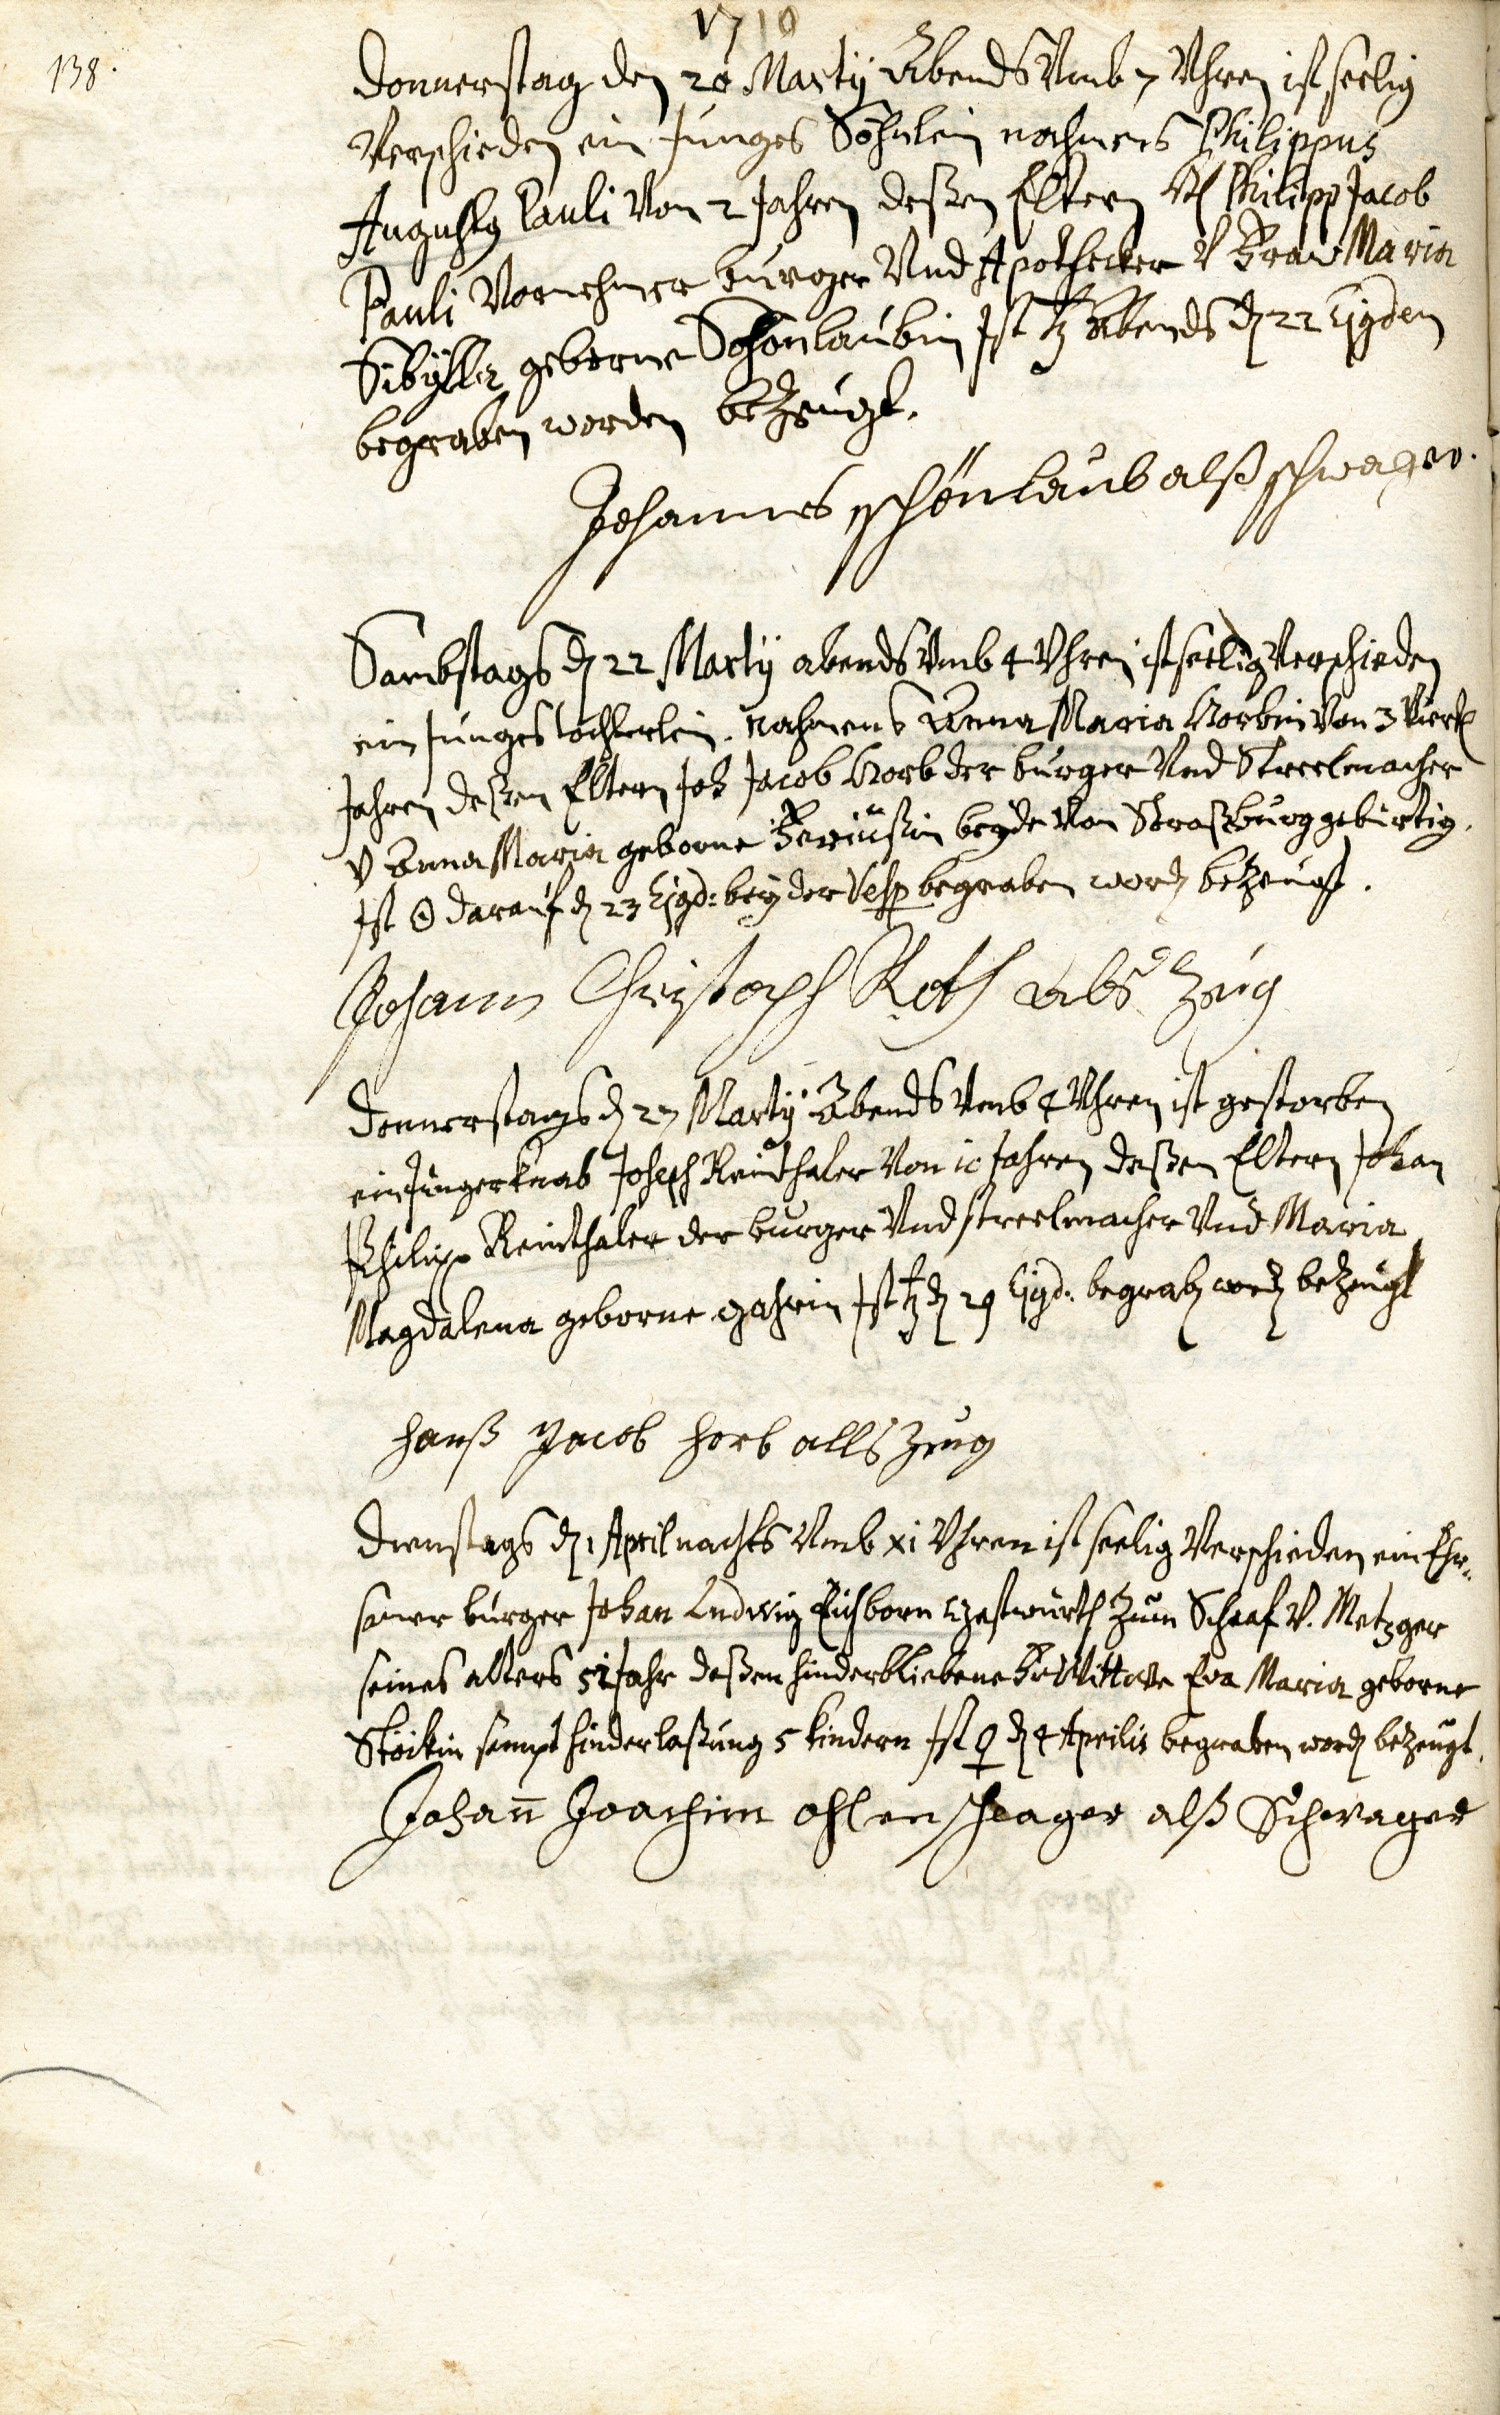 1710
138.
Donnerstag den 20 Martÿ Abends Vmb 7 Vhren ist seelig
Verschieden ein Junges Söhnlein nahmens Philippus
Augustus Pauli Von 2 Jahren deßen Eltern H Philipp Jacob
Pauli Vornehmer burger Vnd Apothecker V Fraw Maria
Sibÿlla geborne Schönlaubin Ist ♄ Abends d 22 Ejusdem
begraben worden bezeugt.
Johannes schönlaub alß schwager.
Sambstags d 22 Martÿ abends Vmb 4 Vhren ist seelig Verschieden
ein Junges töchterlein. Nahmens Anna Maria Horbin Von 3 Viertl
Jahren deßen Eltern Joh Jacob Horb der burger Vnd Streelmacher
V Anna Maria geborne beyde Von Straßburg gebürtig.
Ist ☉ darauf d 23 Ejusd: beÿ der Vesp begraben word bezeugt.
Johann Christoph Roth als Zeug
Donnerstags d 27 Martÿ Abends Vmb 4 Vhren ist gestorben
ein Junger knab Joseph Reinthaler Von 10 Jahren deßen Eltern Johan
Philipp Reinthaler der burger Vnd streelmacher Vnd Maria
Magdalena geborne Ist ♄ d 29 Ejusd: begrab word bezeugt
Hanß Jacob horb allß Zeug
Dienstags d 1 April nachts Vmb xi Vhren ist seelig Verschieden ein Ehr-
samer burger Johan Ludwig Eichborn Gastwürth Zum Schaaf V. Metzger
seines alters 51 Jahr deßen hinderbliebene Fr Wittwe Eva Maria geborne
Stöckin sampt hinderlaßung 5 kindern Ist ♀ d 4 Aprilis begraben word bezeugt.
Johann Joachim ohlenschlager alß Schwager